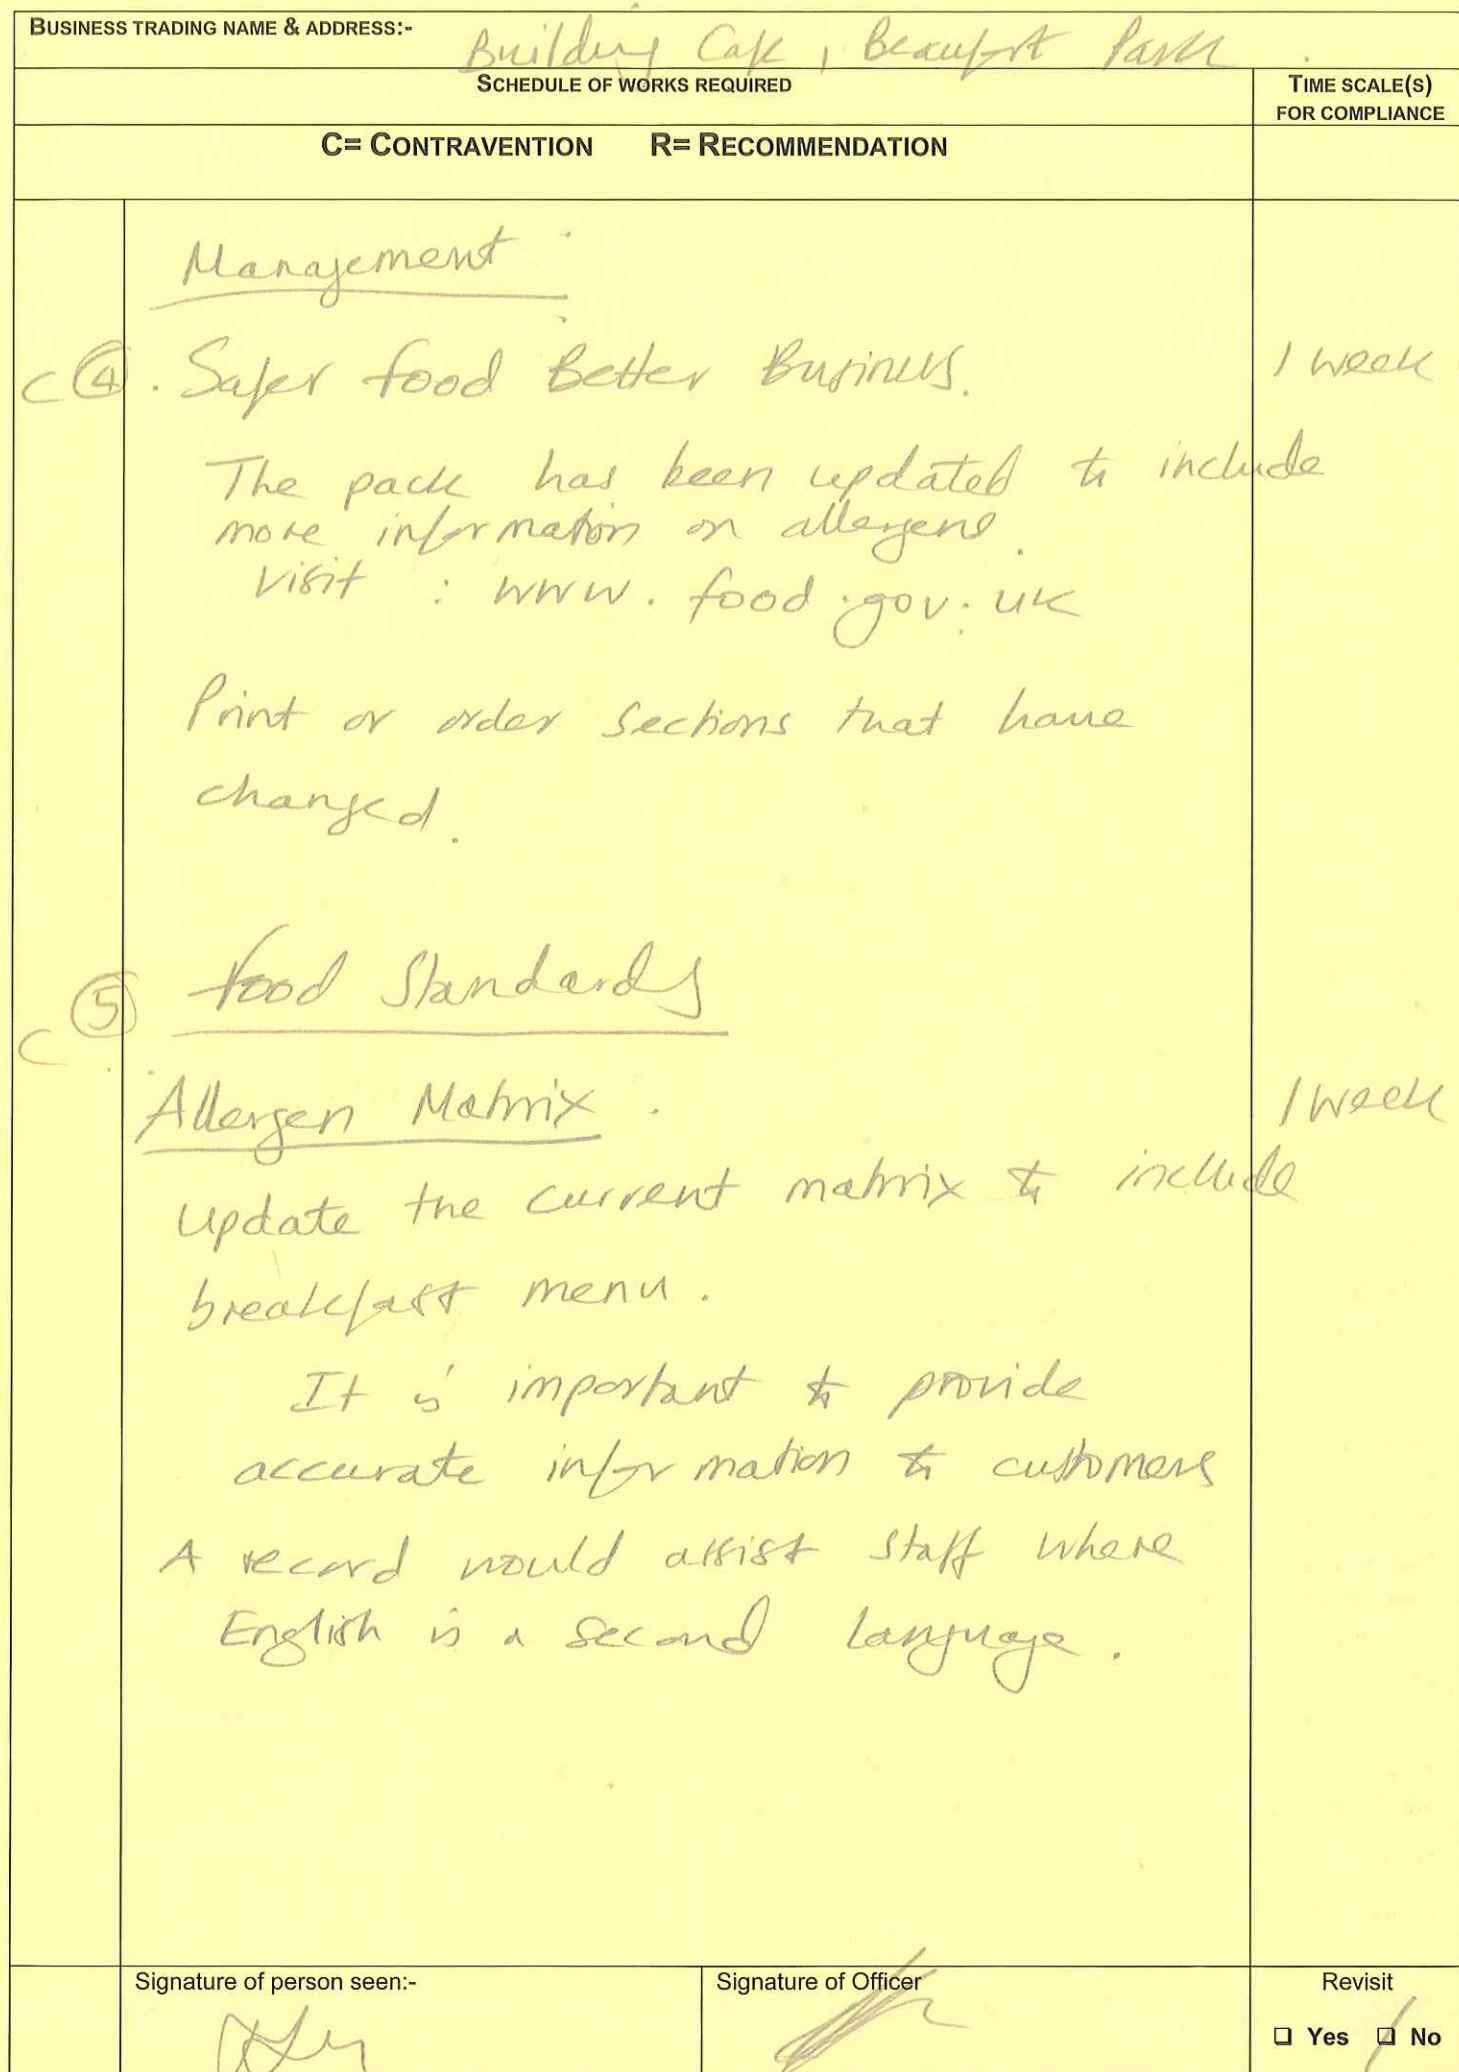 BUSINESS TRADING NAME & ADDRESS:- Building Cafe, Beaufort Park
SCHEDULE OF WORKS REQUIRED
TIME SCALE(S)
FOR COMPLIANCE
C= CONTRAVENTION R= RECOMMENDATION
Management
C 4. Safer food Better Business. 1 week
The pack has been updated to include
more information on allergens.
Visit : www.food.gov.uk
Print or order sections that have
changed.
C 5 Food Standards
Allergen Matrix. 1 week
Update the current matrix to include
breakfast menu.
It is important to provide
accurate information to customers
A record would assist staff where
English is a second language.
Signature of person seen:-
Signature of Officer
Revisit
❑ Yes ❑ No